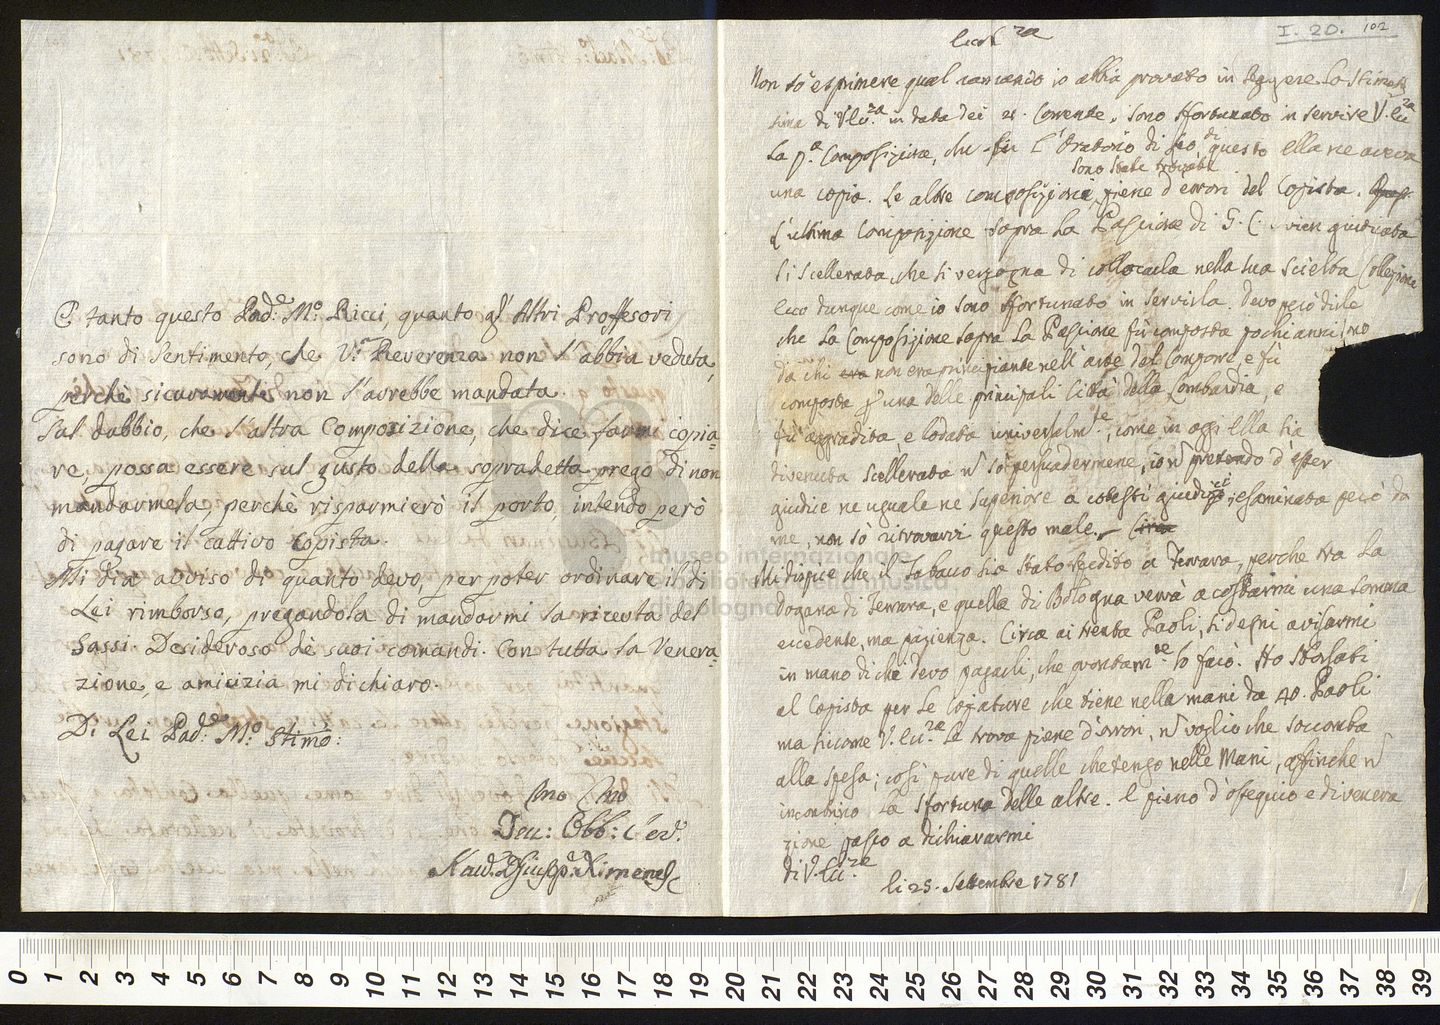 E tanto questo Pad.e M.o Ricci, quanto gl' Altri Proffesori
sono di sentimento, che V.a Reverenza non l'abbia veduta,
perchè sicuramente non l'avrebbe mandata.
Sul dubbio, che l'altra Composizione, che dice farmi copia-
re, possa essere sul gusto della sopradetta prego di non
mandarmela, perchè risparmierò il porto, intendo però
di pagare il cattivo Copista.
Mi dia avviso di quanto devo, per poter ordinare il di
Lei rimborso, pregandola di mandarmi la ricevta del
Sassi. Desideroso de suoi comandi. Con tutta la Venera-
zione, e amicizia mi dichiaro.
Di Lei Pad.e M.o Stimō:
Dev: Obb: Ser.
Giusep.e Ximenes
I. 20. 102
Non sò esprimere qual rancarico io abbia provato in leggere la stimatis
sima di V.Ecc.za in data dei 21. Corrente, sono sfortunato in servire V.Ecc.za
La p.a Composizione, che fù l'Oratorio di Leo, di questo ella ne aveva
sono state trovate
una copia. Le altre composizioni, piene d'errori del Copista.
L'ultima Composizione sopra la Passione di G. C. vien giudicata
sì scellerata, che si vergogna di collocarla nella sua scielta Collezione
ecco dunque come io sono sfortunato in servirla. Devo però dirle
che la Composizione sopra la Passione fù composta pochi anni sono
da chi era non era principiante nell'arte del Comporre, e fù
composta p una delle principali Città della Lombardia, e
fù aggradita, e lodata universalm.te, come in oggi ella sia
divenuta scellerata n sò persuadermene, io n pretendo d'esser
giudice ne uguale ne superiore a cotesti giudici, esaminata però da
me, non sò ritrovarvi questo male. Circa
Mi dispiace che il Tabacco sia stato spedito a Ferrara, perche tra la
Dogana di Ferrara, e quella di Bologna verrà a costarmi una somma
eccedente, ma pazienza. Circa ai trenta Paoli, si degni avisarmi
in mano di chi devo pagarli, che prontam.te lo farò. Ho sborsati
al Copista per le Copiature che tiene nella mani da 40. Paoli
ma siccome V.Ecc.za le trova piene d'errori, n voglio che soccomba
alla spesa; così pure di quelle che tengo nelle Mani, affinche n
incontrino la sfortuna delle altre. E pieno d'ossequio e di venera
zione passo a dichiararmi
di V.Ecc.za
li 25. Settembre 1781
museo internazionale
e biblioteca della musica
di bologna
0 1 2 3 4 5 6 7 8 9 10 11 12 13 14 15 16 17 18 19 20 21 22 23 24 25 26 27 28 29 30 31 32 33 34 35 36 37 38 39